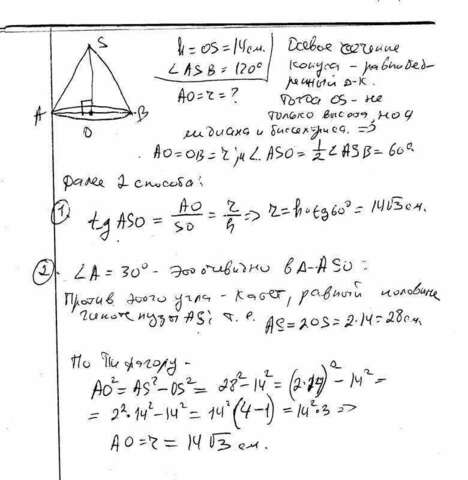 S
A
B
O
h = OS = 14 см.
∠ASB = 120°
AO = r = ?
Осевое сечение
конуса - равнобед-
ренный Δ-к.
Тогда OS - не
только высота, но и
медиана и биссектриса. =>
AO = OB = r и ∠ASO = 1/2 ∠ASB = 60°
Далее 2 способа:
1. tg ASO = AO/SO = r/h => r = h·tg60° = 14√3 см.
2. ∠A = 30° - это очевидно в Δ-ASO:
Против этого угла - катет, равный половине
гипотенузы AS; т. е. AS = 2OS = 2·14 = 28 см
По Пифагору -
AO² = AS² - OS² = 28² - 14² = (2·14)² - 14² =
= 2²·14² - 14² = 14² (4-1) = 14²·3 =>
AO = r = 14√3 см.